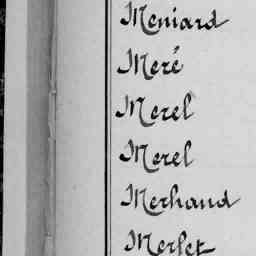 Meniard
Meré
Merel
Merel
Merhand
Merlet